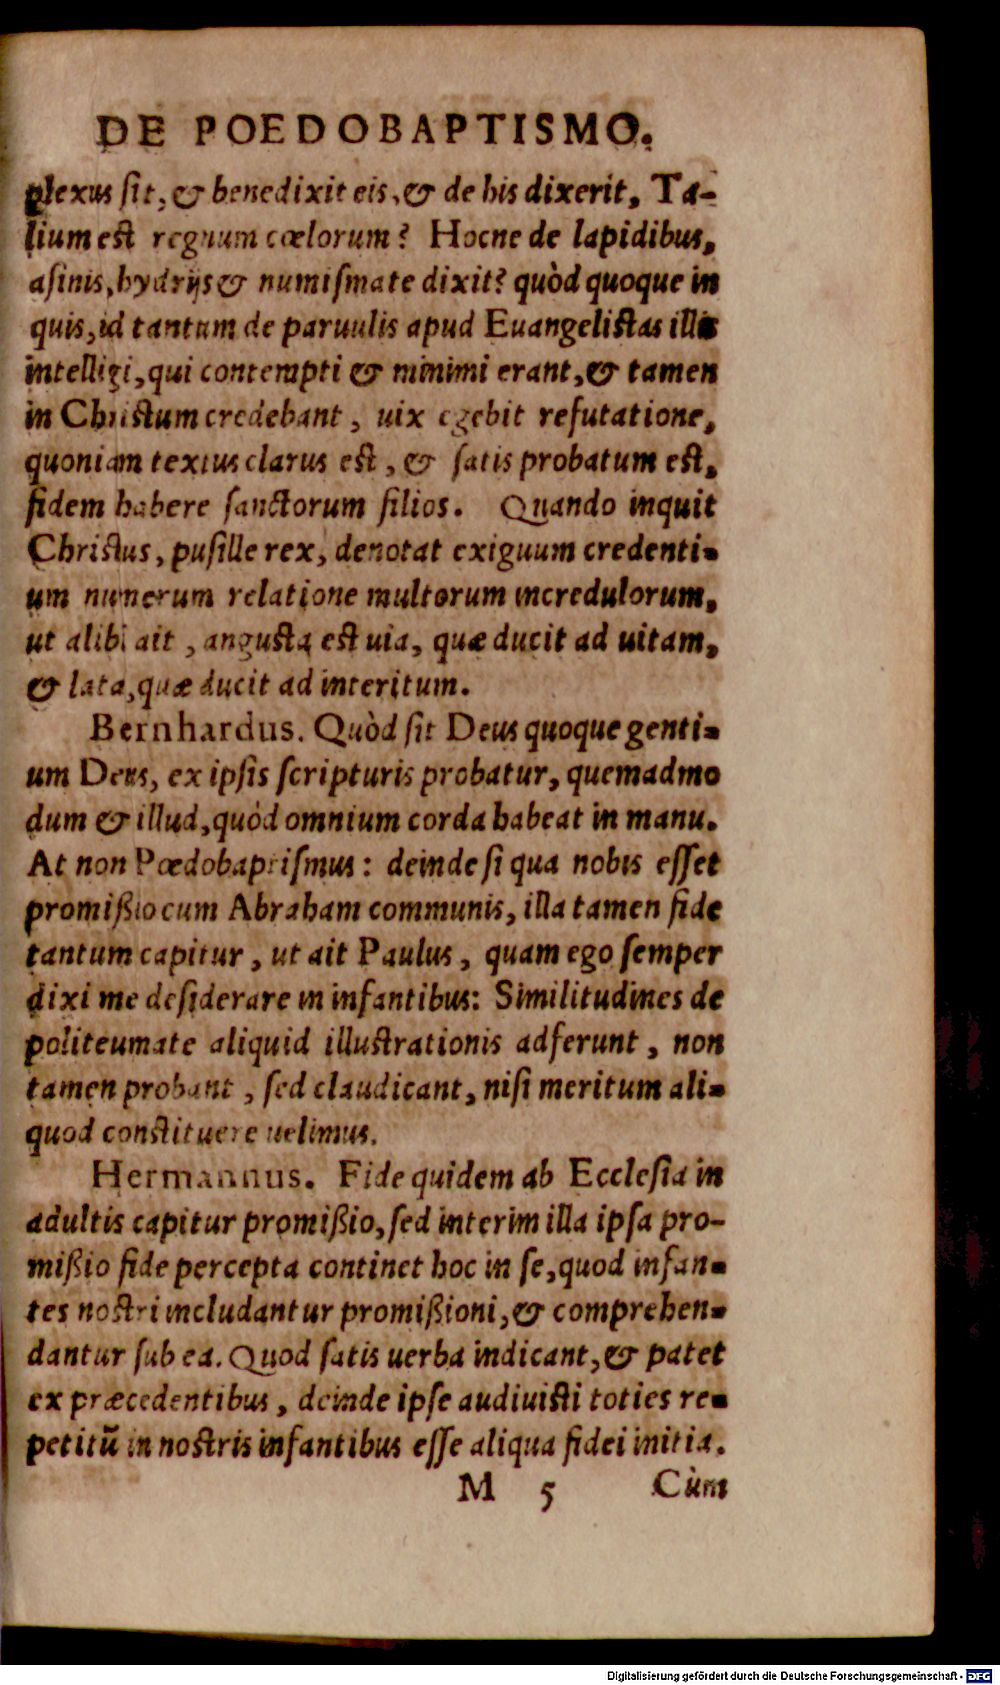 DE POEDOBAPTISMO.
plexus sit, & benedixit eis, & de his dixerit, Ta-
lium est regnum cœlorum? Hocne de lapidibus,
asinis, hydrijs & numismate dixit? quòd quoque in
quis, id tantum de paruulis apud Euangelistas illis
intelligi, qui contempti & minimi erant, & tamen
in Christum credebant, uix egebit refutatione,
quoniam textus clarus est, & satis probatum est,
fidem habere sanctorum filios. Quando inquit
Christus, pusille rex, denotat exiguum credenti-
um numerum relatione multorum incredulorum,
ut alibi ait, angusta est uia, quæ ducit ad uitam,
& lata, quæ ducit ad interitum.
Bernhardus. Quòd sit Deus quoque genti-
um Deus, ex ipsis scripturis probatur, quemadmo
dum & illud, quòd omnium corda habeat in manu.
At non Pœdobaptismus: deinde si qua nobis esset
promißio cum Abraham communis, illa tamen fide
tantum capitur, ut ait Paulus, quam ego semper
dixi me desiderare in infantibus: Similitudines de
politeumate aliquid illustrationis adferunt, non
tamen probant, sed claudicant, nisi meritum ali-
quod constituere uelimus.
Hermannus. Fide quidem ab Ecclesia in
adultis capitur promißio, sed interim illa ipsa pro-
mißio fide percepta continet hoc in se, quod infan-
tes nostri includantur promißioni, & comprehen-
dantur sub ea. Quod satis uerba indicant, & patet
ex præcedentibus, deinde ipse audiuisti toties re-
petitũ in nostris infantibus esse aliqua fidei initia.
M 5 Cùm
Digitalisierung gefördert durch die Deutsche Forschungsgemeinschaft - DFG